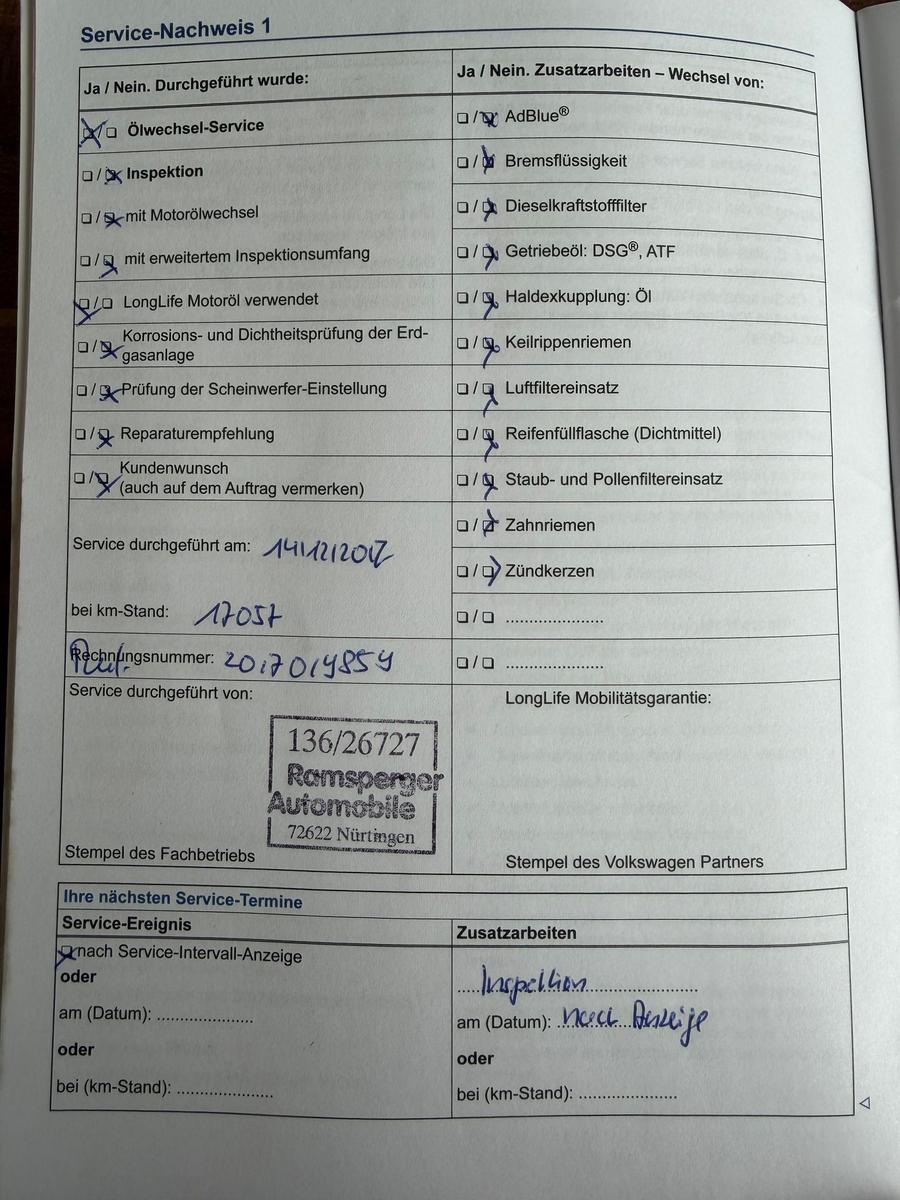 Service-Nachweis 1
Ja / Nein. Durchgeführt wurde:
Ölwechsel-Service
Inspektion
mit Motorölwechsel
mit erweitertem Inspektionsumfang
LongLife Motoröl verwendet
Korrosions- und Dichtheitsprüfung der Erd-
gasanlage
Prüfung der Scheinwerfer-Einstellung
Reparaturempfehlung
Kundenwunsch
(auch auf dem Auftrag vermerken)
Service durchgeführt am: 14/12/2017
bei km-Stand: 17057
Rechnungsnummer:
Service durchgeführt von:
136/26727
Ramsperger
Automobile
72622 Nürtingen
Stempel des Fachbetriebs
Ja / Nein. Zusatzarbeiten – Wechsel von:
AdBlue®
Bremsflüssigkeit
Dieselkraftstofffilter
Getriebeöl: DSG®, ATF
Haldexkupplung: Öl
Keilrippenriemen
Luftfiltereinsatz
Reifenfüllflasche (Dichtmittel)
Staub- und Pollenfiltereinsatz
Zahnriemen
Zündkerzen
LongLife Mobilitätsgarantie:
Stempel des Volkswagen Partners
Ihre nächsten Service-Termine
Service-Ereignis
nach Service-Intervall-Anzeige
oder
am (Datum): ....................
oder
bei (km-Stand): ....................
Zusatzarbeiten
Inspektion
am (Datum): nach Anzeige
oder
bei (km-Stand): ....................